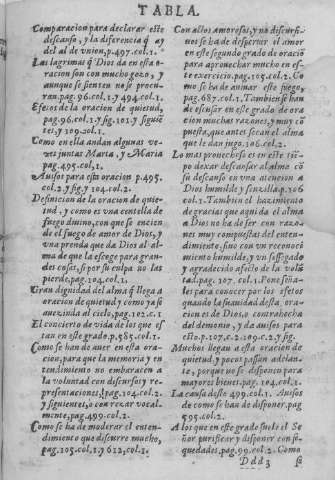 TABLA.
Comparacion para declarar este
descanso, y la diferencia q̃ ay
del al de vnion, p. 497. col. 1.
Las lagrimas q̃ Dios da en esta o-
racion son con mucho gozo, y
aunque se sienten no se procu-
ran. pag. 96. col. 1. y 494. col. 1.
Efetos de la oracion de quietud,
pag. 96. col. 1. y sig. 101. y siguiẽ-
tes, y 109. col. 1.
Como en ella andan algunas ve-
zes juntas Marta, y Maria
pag. 495. col. 1.
Auisos para esta oracion p. 495.
col. 2. y sig. y 104. col. 2.
Definicion de la oracion de quie-
tud, y como es vna centella de
fuego diuino, con que se encien-
de el fuego de amor de Dios, y
vna prenda que da Dios al al-
ma de que la escoge para gran-
des cosas, si por su culpa no las
pierde, 104. col. 1.
Gran dignidad del alma q̃ llega a
oracion de quietud y como ya se
auezinda al cielo, pag. 102. c. 1
El concierto de vida de los que es
tan en este grado, p. 585. col. 1.
Como se han de auer en esta ora-
cion, para que la memoria y en
tendimiento no embaracen a
la voluntad con discursos y re-
presentaciones, pag. 104. col. 2.
y siguientes, o con rezar vocal-
mente, pag. 499. col. 2.
Como se ha de moderar el enten-
dimiento que discurre mucho,
pag. 105. col. 1. y 612. col. 1.
Con actos amorosos, y no discursi-
uos se ha de despertar el amor
en este segundo grado de oraciõ
para aprouechar mucho en es-
te exercicio, pag. 105. col. 2. Co
mo se ha de auiuar este fuego,
pag. 687. col. 1. Tambien se han
de escusar en este grado de ora
cion muchas razones, y muy cõ
puestas, que antes secan el alma
que le dan jugo. 106. col. 2.
Lo mas prouechoso es en este tiẽ-
po dexar descansar al alma cõ
su descanso en vna atencion a
Dios humilde y senzilla. p. 106
col. 1. Tambien el hazimiento
de gracias que aqui da el alma
a Dios no ha de ser con razo-
nes muy compuestas del enten-
dimiento, sino con vn reconoci
miento humilde, y vn sossegado
y agradecido afecto de la volũ
tad. pag. 107. col. 1. Pone señа-
les para conocer por los efetos
quando la suauidad desta ora-
cion es de Dios, o contrahecha
del demonio, y da auisos para
esto, p. 107. c. 2. 109. c. 2. y sig.
Muchos llegan a esta oracion de
quietud, y pocos passan adelan-
te, porque no se disponen para
mayores bienes, pag. 104. col. 1.
La causa deste 499. col. 1. Auisos
de como se han de disponer, pag
595. col. 2.
A los que en este grado suele el Se
ñor purificar y disponer con se-
quedades, pag. 99. col. 2. Como
Ddd 3
se